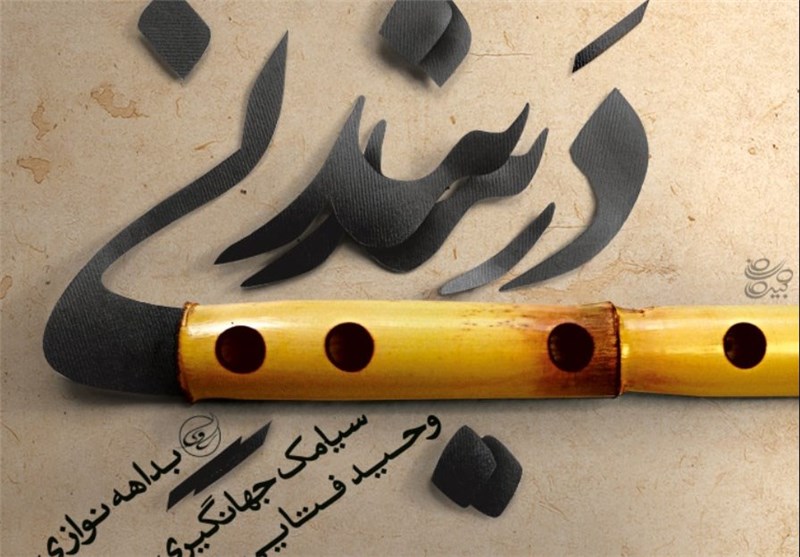 دَر بندِ نی
بداهه نوازی
سیامک جهانگیری
وحید فتایی